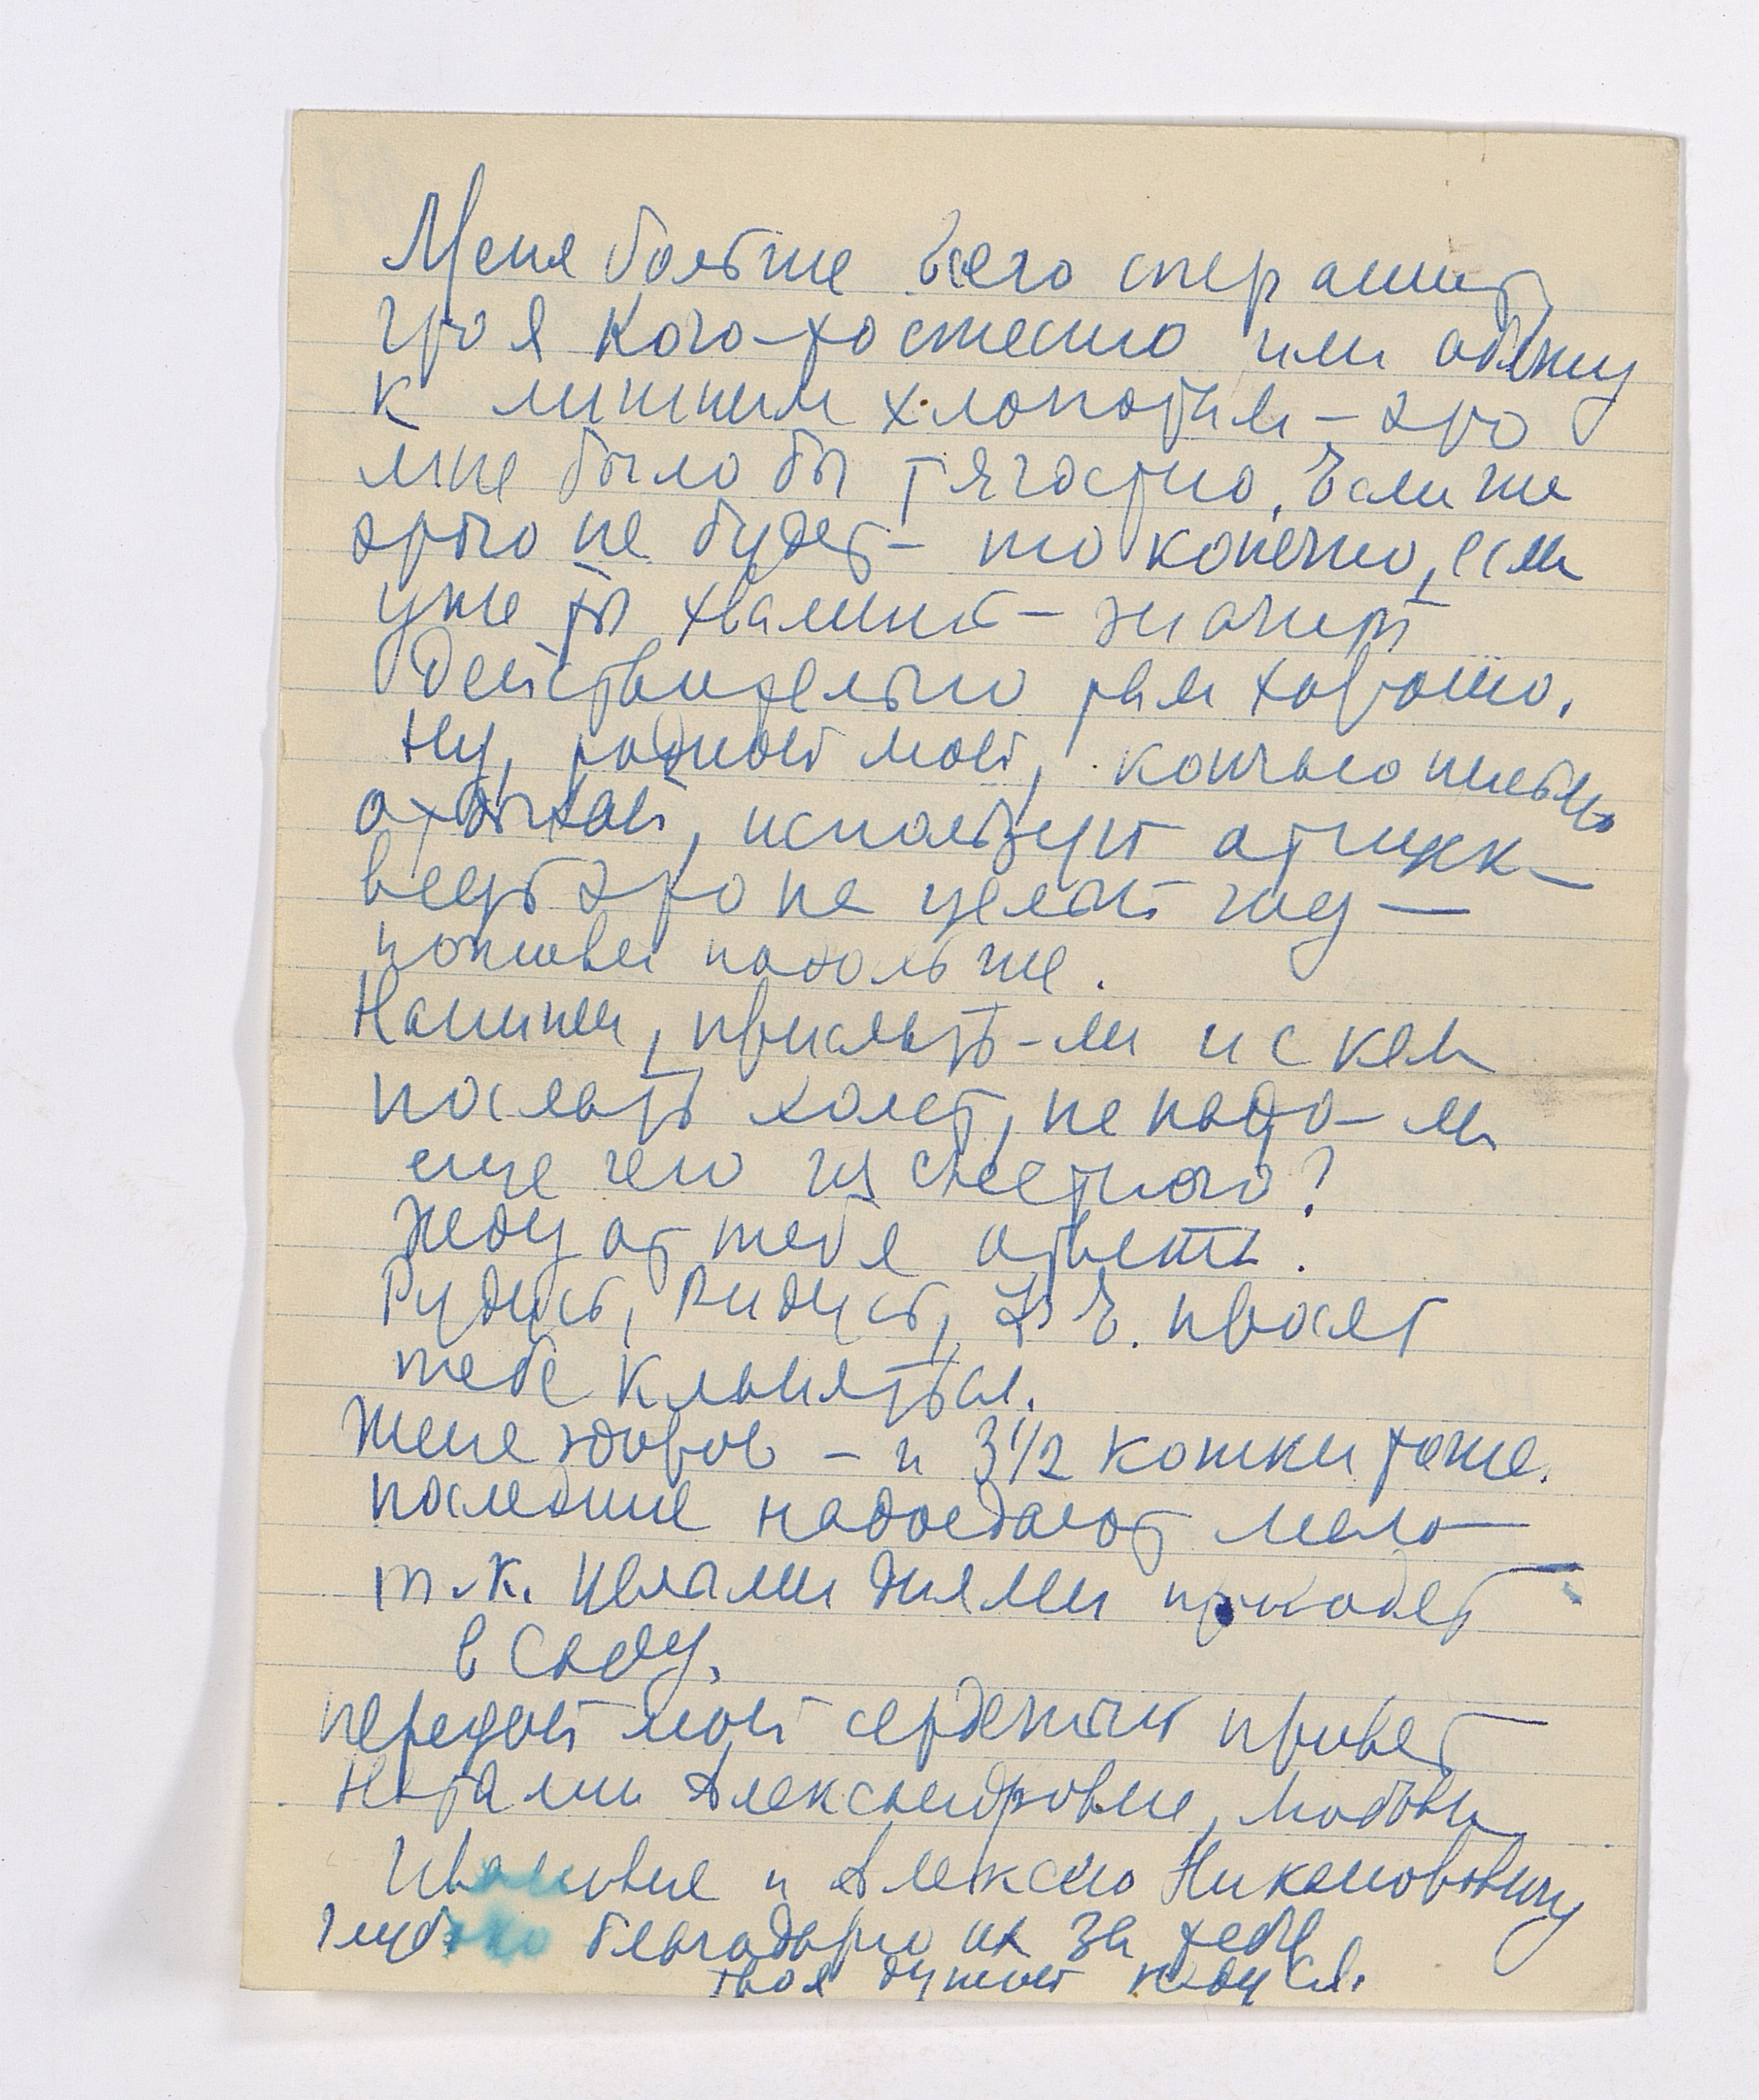 Меня больше всего страшит
что я кого-то стесню или обяжу
к лишним хлопотам – это
мне было бы тягостно. Если же
этого не будет – то конечно, если
уже ты хвалишь – значит
действительно там хорошо.
Ну, родной мой, кончаю письмо
отдыхай, используй отпуск –
ведь это не целый год —
поживи подольше.
Напиши, прислать-ли и с кем
послать холст, не надо-ли
еще чего из съестного?
Жду от тебя ответа.
Рудусь, Видусь, З.Е. просят
тебе кланяться.
Женя здоров – и 3 1/2 кошки тоже.
последние надоедают мало —
т.к. целыми днями проходят
в саду.
передай мой сердечный привет
Наталии Александровне, Любови
Ивановне и Алексею Никаноровичу
глубоко благодарю их за тебя
твоя душой Надуся.